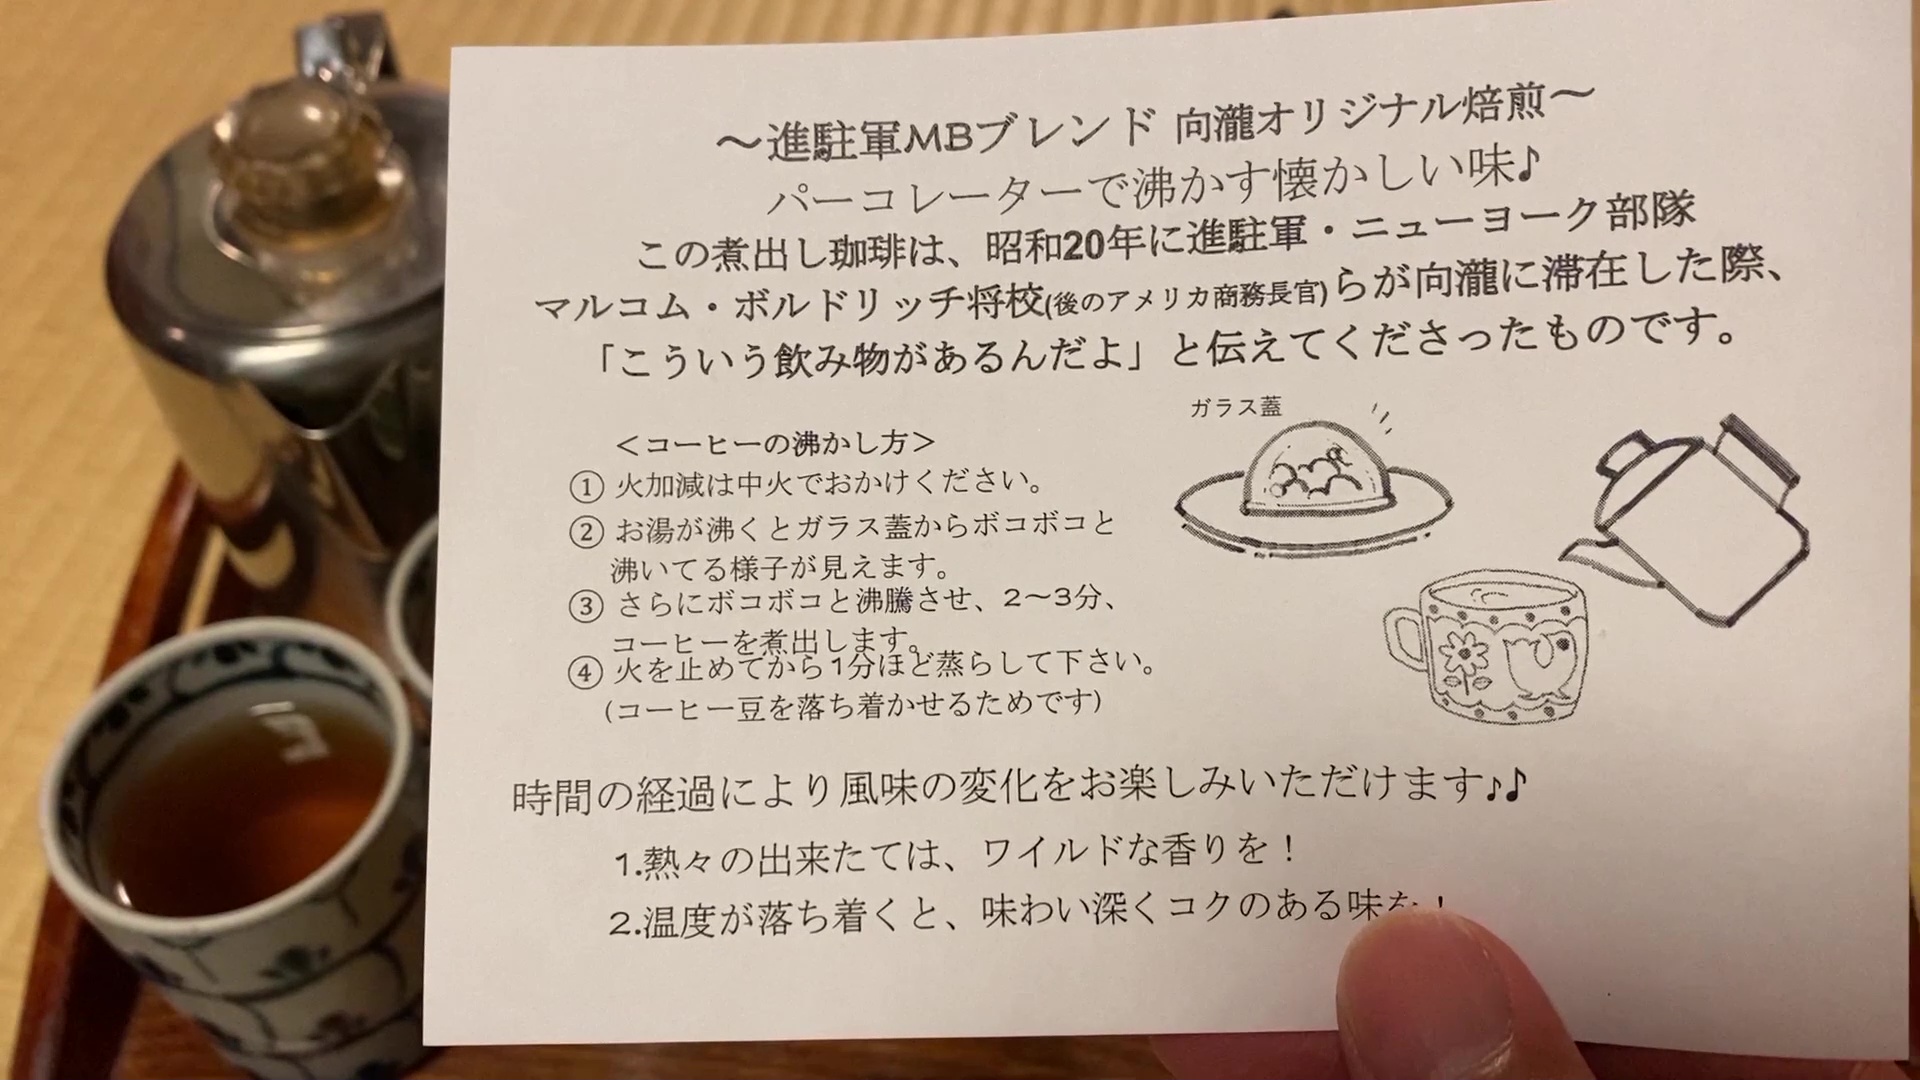 ～進駐軍MBブレンド 向瀧オリジナル焙煎～
パーコレーターで沸かす懐かしい味♪
この煮出し珈琲は、昭和20年に進駐軍・ニューヨーク部隊
マルコム・ボルドリッチ将校(後のアメリカ商務長官)らが向瀧に滞在した際、
「こういう飲み物があるんだよ」と伝えてくださったものです。
ガラス蓋
＜コーヒーの沸かし方＞
① 火加減は中火でおかけください。
② お湯が沸くとガラス蓋からボコボコと
沸いてる様子が見えます。
③ さらにボコボコと沸騰させ、2～3分、
コーヒーを煮出します。
④ 火を止めてから1分ほど蒸らして下さい。
(コーヒー豆を落ち着かせるためです)
時間の経過により風味の変化をお楽しみいただけます♪♪
1.熱々の出来たては、ワイルドな香りを！
2.温度が落ち着くと、味わい深くコクのある味を！